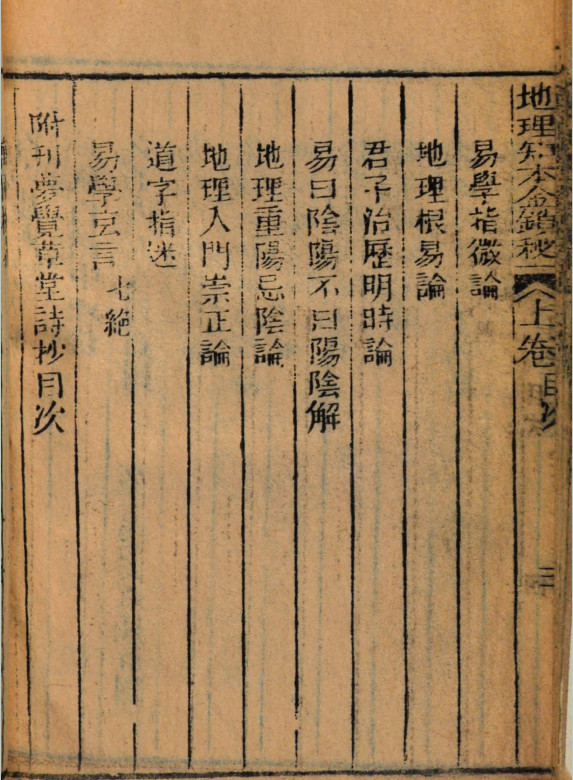 地理知本金鎖秘 上卷目次 三
易學指微論
地理根易論
君子治歷明時論
易曰陰陽不曰陽陰解
地理重陽忌陰論
地理入門崇正論
道字指迷
易學玄言 七絶
附刊夢覺草堂詩抄目次